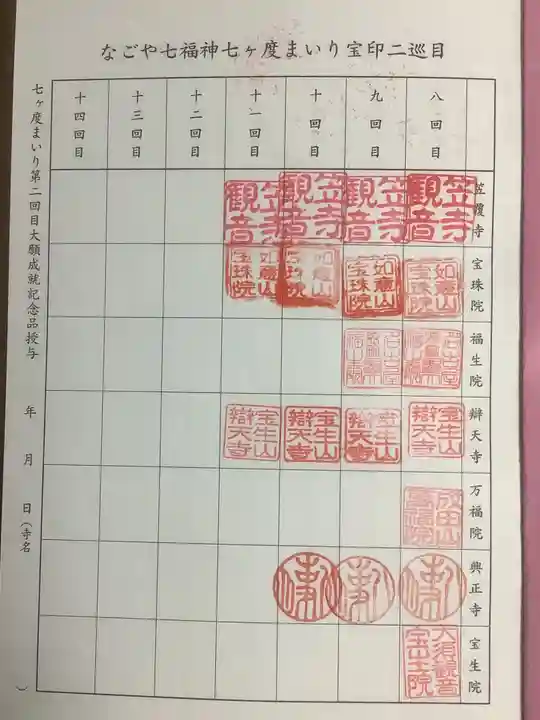 なごや七福神七ヶ度まいり宝印二巡目
八回目
九回目
十回目
十一回目
十二回目
十三回目
十四回目
笠覆寺
笠寺観音
笠寺観音
笠寺観音
笠寺観音
宝珠院
如意山宝珠院
如意山宝珠院
如意山宝珠院
如意山宝珠院
福生院
辯天寺
宝生山辯天寺
宝生山辯天寺
宝生山辯天寺
宝生山辯天寺
万福院
成田山萬福院
興正寺
宝生院
大須観音宝生院
七ヶ度まいり第二回目大願成就記念品授与
年 月 日(寺名 )